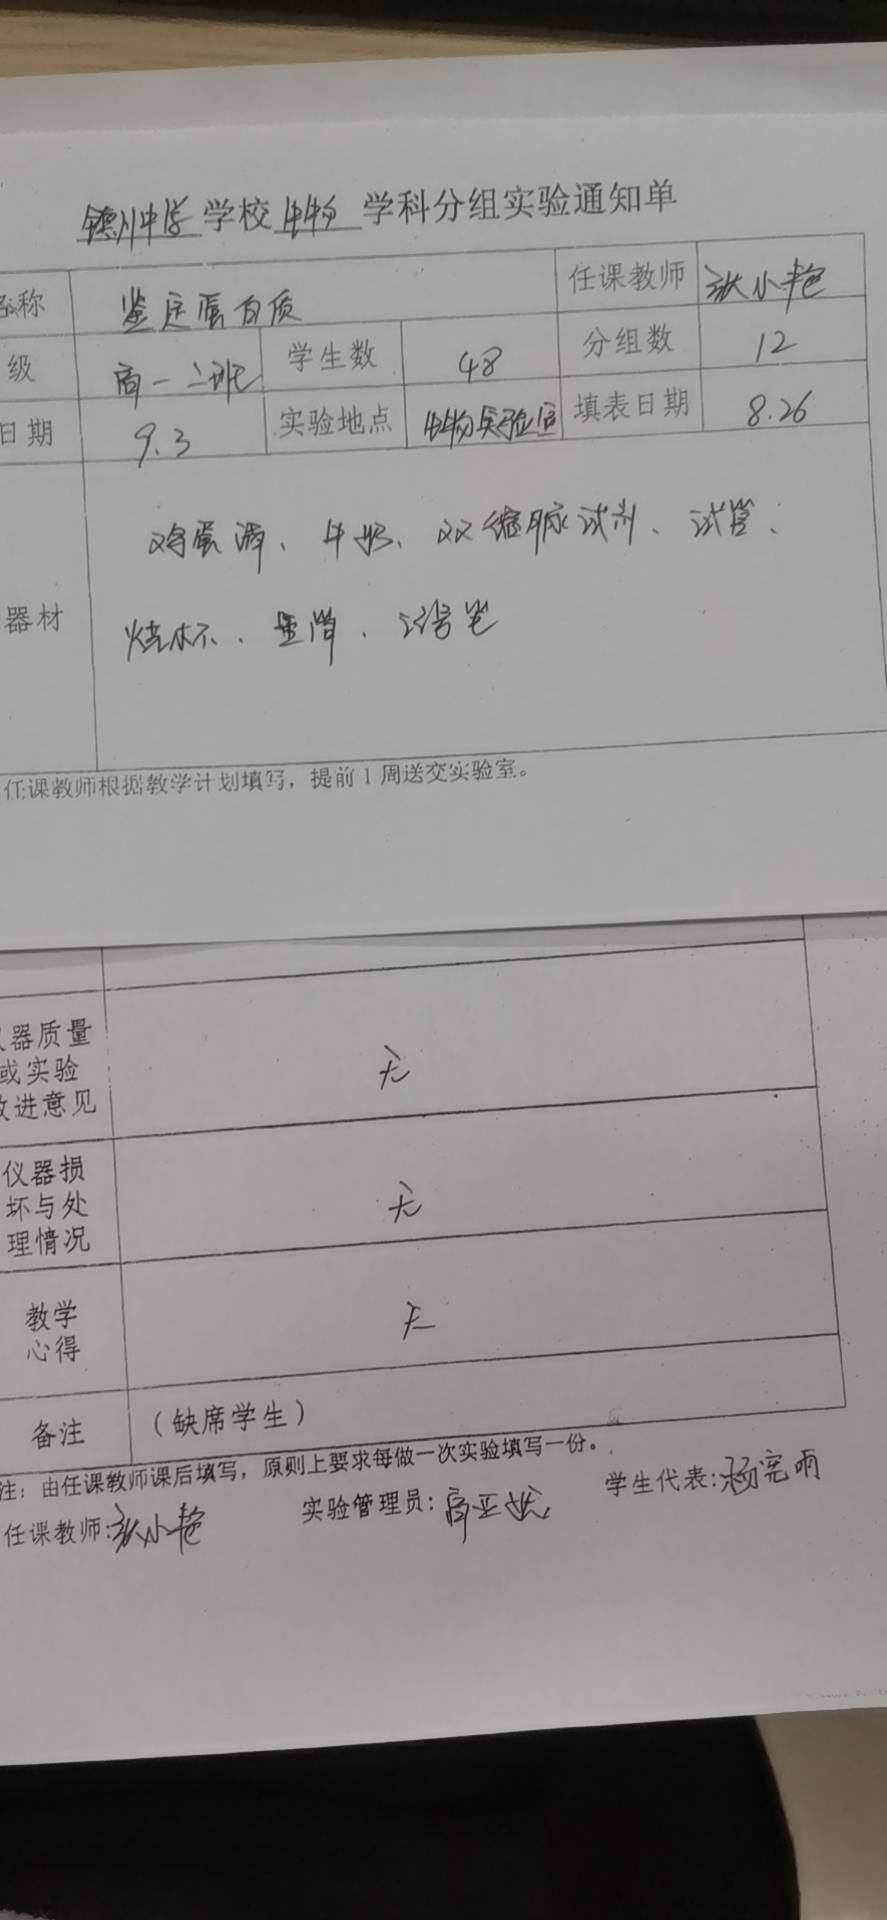 镇川中学学校生物学科分组实验通知单
名称 鉴定蛋白质 任课教师 张小艳
级 高一二班 学生数 48 分组数 12
日期 9.3 实验地点 生物实验室 填表日期 8.26
器材
鸡蛋清、牛奶、双缩脲试剂、试管、
烧杯、量筒、记号笔
任课教师根据教学计划填写，提前1周送交实验室。
仪器质量
或实验
改进意见
无
仪器损
坏与处
理情况
无
教学
心得
无
备注 （缺席学生）
注：由任课教师课后填写，原则上要求每做一次实验填写一份。
任课教师：张小艳 实验管理员： 学生代表：